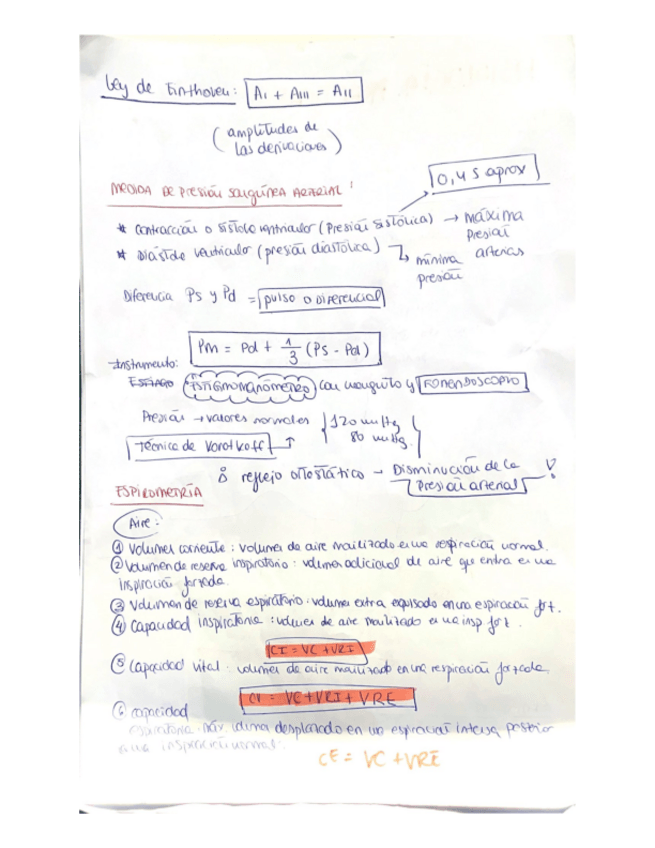 Ley de Einthoven: AI + AIII = AII
(amplitudes de
las derivaciones)
0,4 s aprox
MEDIDA DE PRESIÓN SANGUÍNEA ARTERIAL:
* Contracción o sístole ventricular (Presión sistólica) → máxima
presión
* Diástole ventricular (presión diastólica) → mínima
presión
arterias
Diferencia Ps y Pd = pulso o DIFERENCIAL
Pm = Pd + 1/3 (Ps - Pd)
Instrumento:
ESTIGMOMANÓMETRO con manguito y FONENDOSCOPIO
Presión → valores normales { 120 mmHg
80 mmHg. }
Técnica de Korotkoff ↑
reflejo ortostático → Disminución de la
Presión arterial !
ESPIROMETRÍA
Aire:
① Volumen corriente: volumen de aire movilizado en una respiración normal.
② Volumen de reserva inspiratorio: volumen adicional de aire que entra en una
inspiración forzada.
③ Volumen de reserva espiratorio: volumen extra expulsado en una espiración forz.
④ Capacidad inspiratoria: volumen de aire movilizado en una insp forz.
CI = VC + VRI
⑤ Capacidad vital: volumen de aire movilizado en una respiración forzada.
CV = VC + VRI + VRE
⑥ capacidad
espiratoria máx. volumen desplazado en una espiración intensa posterior
a una inspiración normal.
CE = VC + VRE